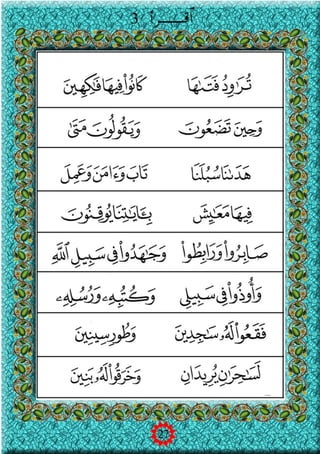 اقرأ 3
تُرَٰوِدُ فَتَىٰهَا كَانُوا۟ فِيهَا فَـٰكِهِينَ
وَحِينَ تَضَعُونَ وَيَقُولُونَ مَتَىٰ
هَدَىٰنَا سُبُلَنَا تَابَ وَءَامَنَ وَعَمِلَ
فِيهَا مَعَـٰيِشَ بِـَٔايَـٰتِنَا يُوقِنُونَ
صَابِرُوا۟ وَرَابِطُوا۟ وَجَـٰهَدُوا۟ فِى سَبِيلِ ٱللَّهِ
وَأُوذُوا۟ فِى سَبِيلِى وَكُتُبِهِۦ وَرُسُلِهِۦ
فَقَعُوا۟ لَهُۥ سَـٰجِدِينَ وَطُورِ سِينِينَ
لَسَـٰحِرَٰنِ يُرِيدَانِ وَخَرَقُوا۟ لَهُۥ بَنِينَ
27